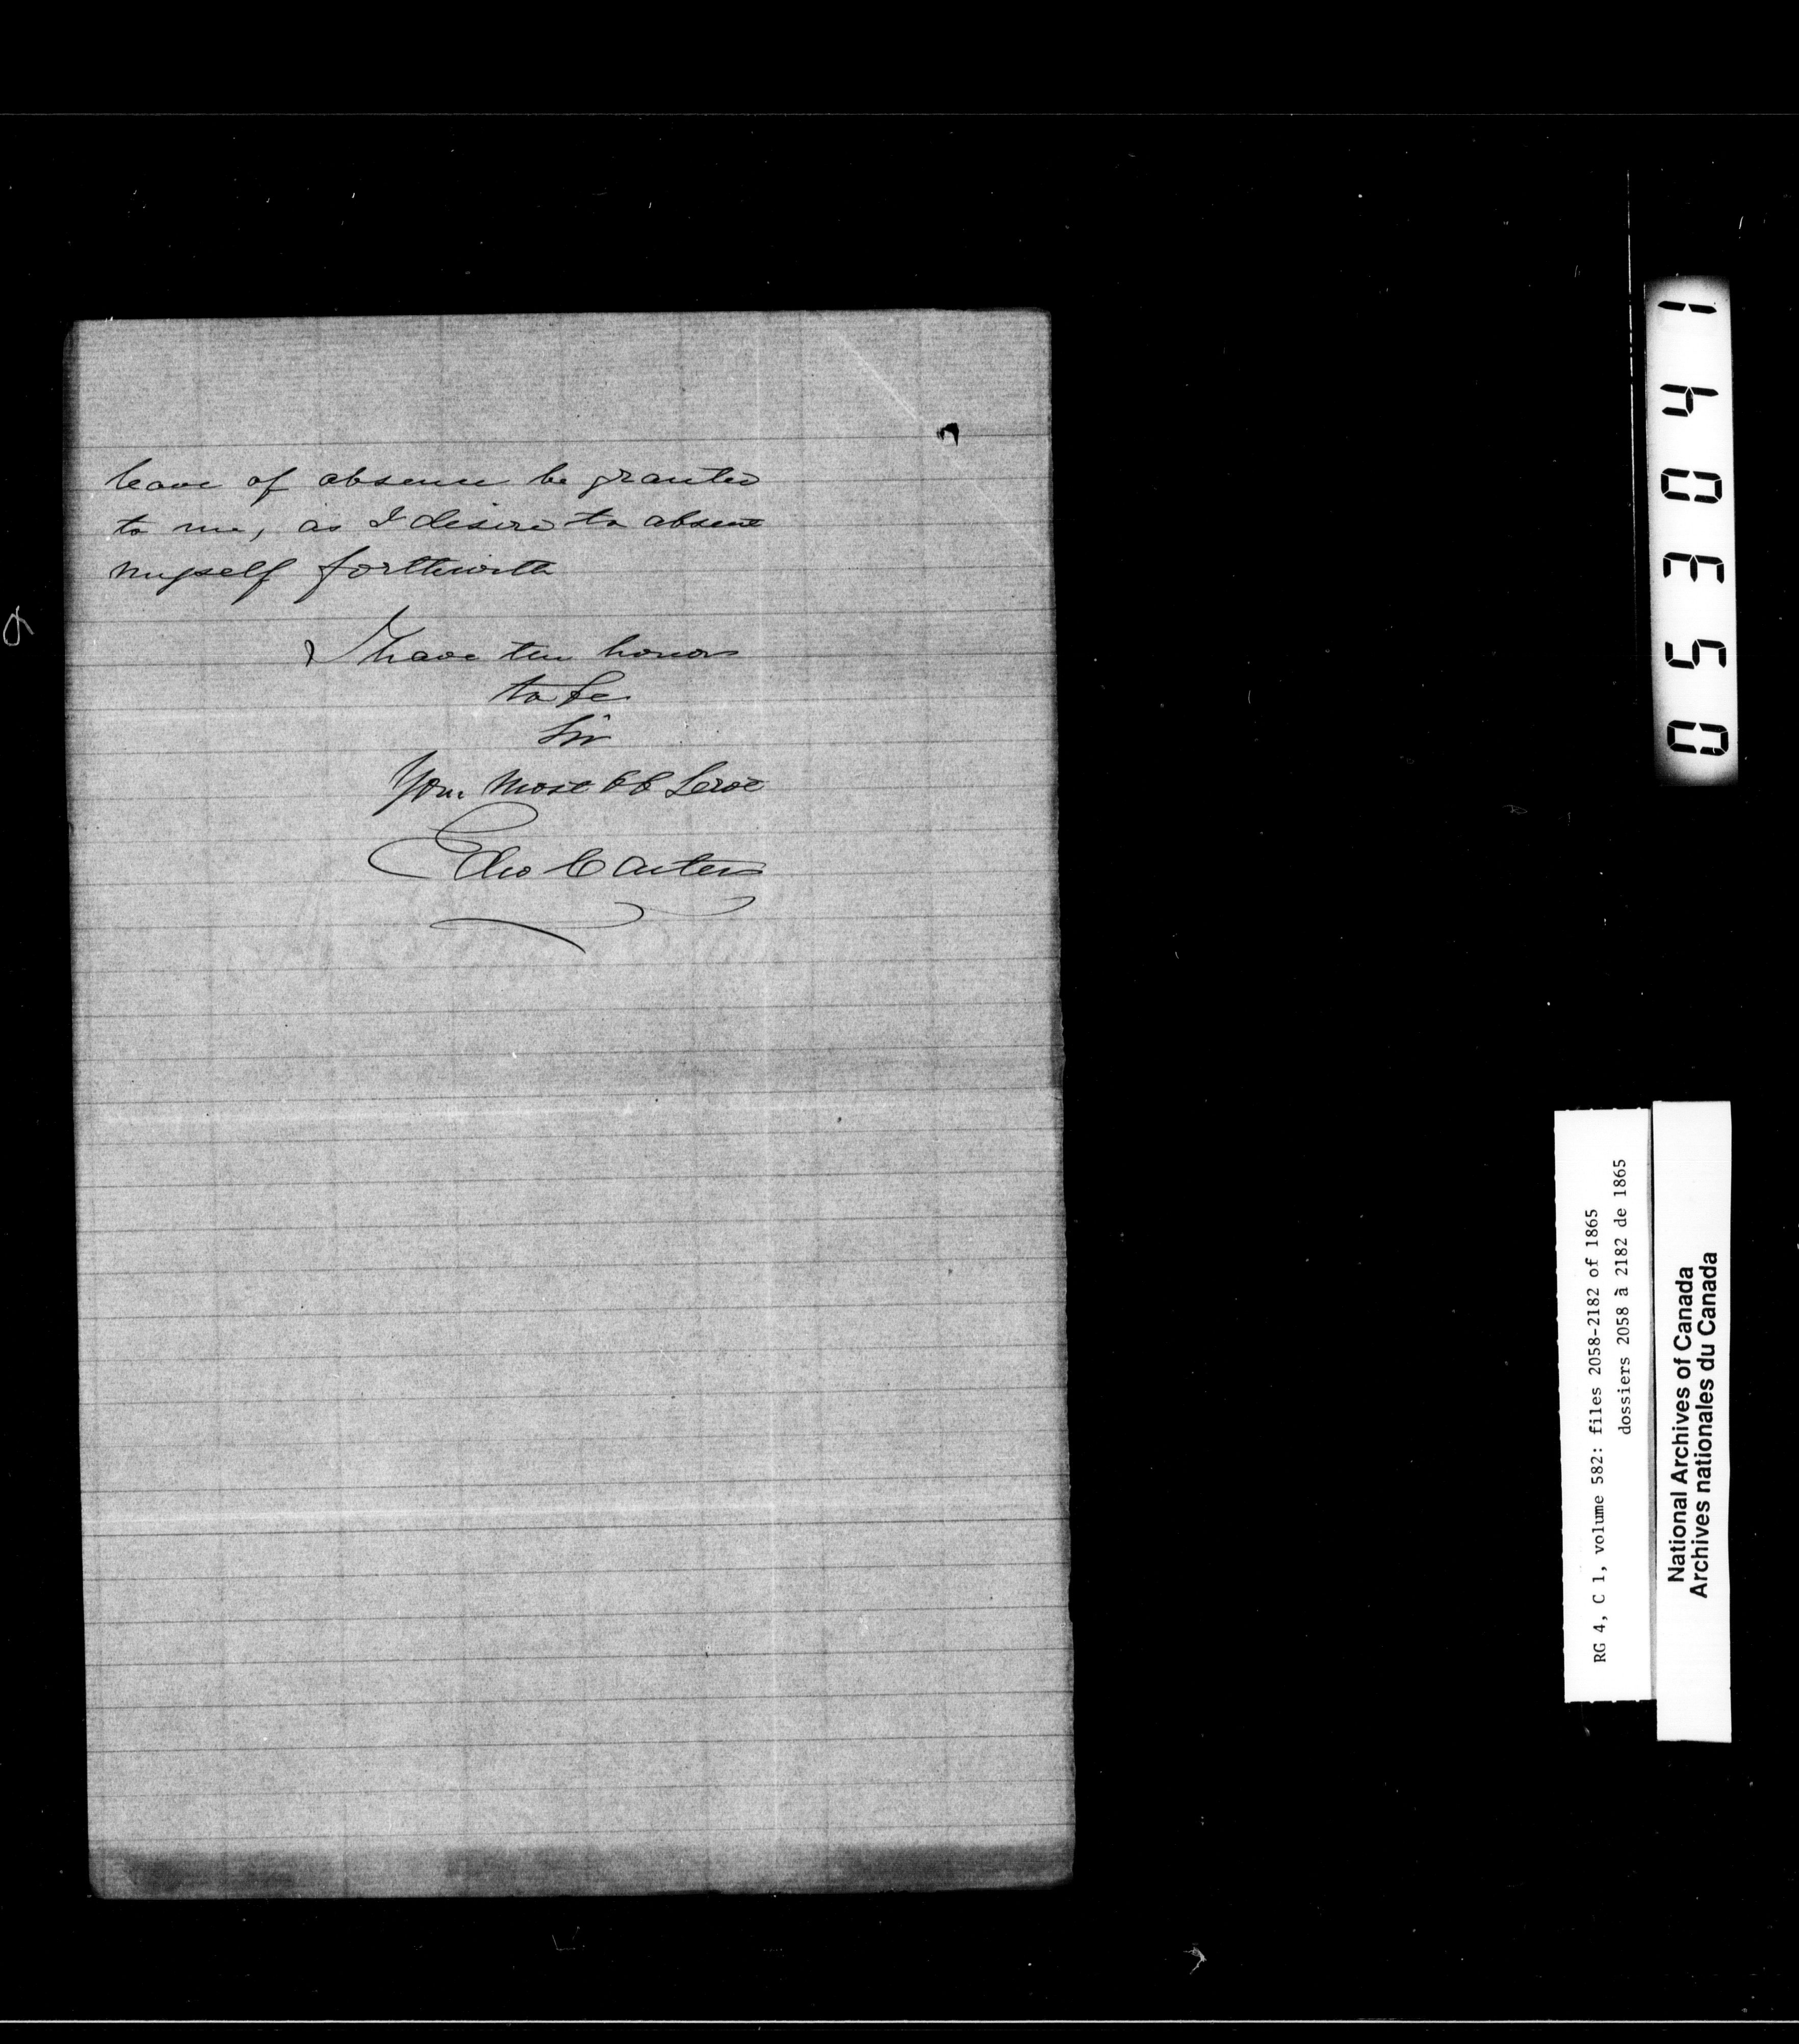 leave of absence be granted
to me, as I desire to absent
myself forthwith
I have the honor
to be
Sir
Your most ob Servt
Edw Carter
053041
RG 4, C 1, volume 582: files 2058-2182 of 1865
dossiers 2058 à 2182 de 1865
National Archives of Canada
Archives nationales du Canada